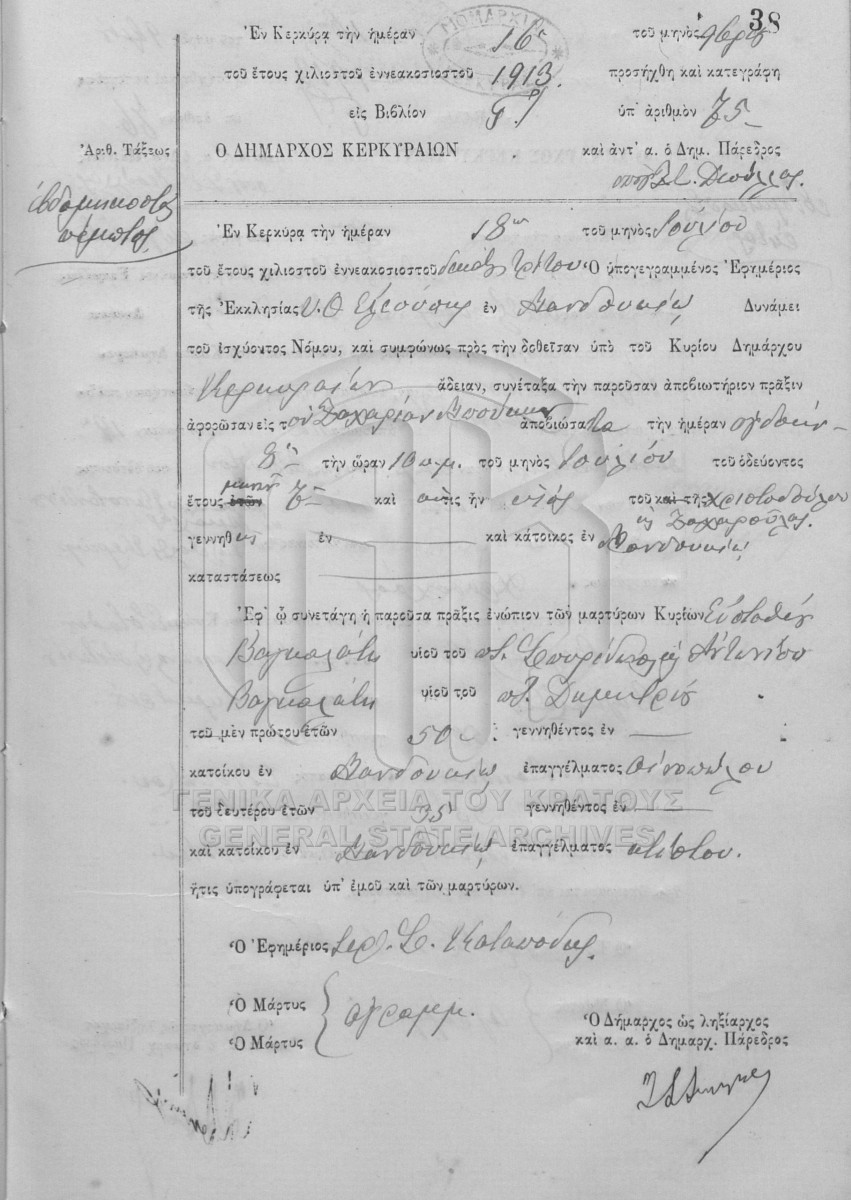 38
Ἐν Κερκύρᾳ τὴν ἡμέραν 16ῃ τοῦ μηνὸς 9βρίου
τοῦ ἔτους χιλιοστοῦ ἐννεακοσιοστοῦ 1913 προσήχθη καὶ κατεγράφη
εἰς Βιβλίον ὑπ' ἀριθμὸν 75
Ἀριθ. Τάξεως
Ο ΔΗΜΑΡΧΟΣ ΚΕΡΚΥΡΑΙΩΝ καὶ ἀντ' α. ὁ Δημ. Πάρεδρος
ἑβδομηκοστὸς
πέμπτος
Ἐν Κερκύρᾳ τὴν ἡμέραν 18ην τοῦ μηνὸς Ἰουλίου
τοῦ ἔτους χιλιοστοῦ ἐννεακοσιοστοῦ δεκάτου τρίτου Ὁ ὑπογεγραμμένος Ἐφημέριος
τῆς Ἐκκλησίας Υ. Θ. Ἐλεούσης ἐν Δυνάμει
τοῦ ἰσχύοντος Νόμου, καὶ συμφώνως πρὸς τὴν δοθεῖσαν ὑπὸ τοῦ Κυρίου Δημάρχου
Κερκυραίων ἄδειαν, συνέταξα τὴν παροῦσαν ἀποβιωτήριον πρᾶξιν
ἀφορῶσαν εἰς τὸν Ζαχαρίαν ἀποβιώσαντα τὴν ἡμέραν ὀγδόην
8ην τὴν ὥραν 10 π.μ. τοῦ μηνὸς Ἰουλίου τοῦ ὁδεύοντος
ἔτους ἐτῶν μηνῶν 7 καὶ ὅστις ἦν υἱὸς τοῦ καὶ τῆς Χριστοδούλου
κ Ζαχαρούλας.
γεννηθεὶς ἐν καὶ κάτοικος ἐν
καταστάσεως
Ἐφ' ᾧ συνετάγη ἡ παροῦσα πρᾶξις ἐνώπιον τῶν μαρτύρων Κυρίων Εὐσταθίου
Βαγκαλάτη υἱοῦ τοῦ ποτ. Σπυρίδωνος καὶ Ἀντωνίου
Βαγκαλάτη υἱοῦ τοῦ ποτ. Δημητρίου
τοῦ μὲν πρώτου ἐτῶν 50 γεννηθέντος ἐν
κατοίκου ἐν ἐπαγγέλματος οἰνοπώλου
ΓΕΝΙΚΑ ΑΡΧΕΙΑ ΤΟΥ ΚΡΑΤΟΥΣ
τοῦ δευτέρου ἐτῶν 35 γεννηθέντος ἐν
GENERAL STATE ARCHIVES
καὶ κατοίκου ἐν ἐπαγγέλματος κτίστου.
ἥτις ὑπογράφεται ὑπ' ἐμοῦ καὶ τῶν μαρτύρων.
Ὁ Ἐφημέριος Ἱερ. Σ. Καταπόδης
Ὁ Μάρτυς
ἀγράμμ.
Ὁ Μάρτυς
Ὁ Δήμαρχος ὡς ληξίαρχος
καὶ α. α. ὁ Δημαρχ. Πάρεδρος